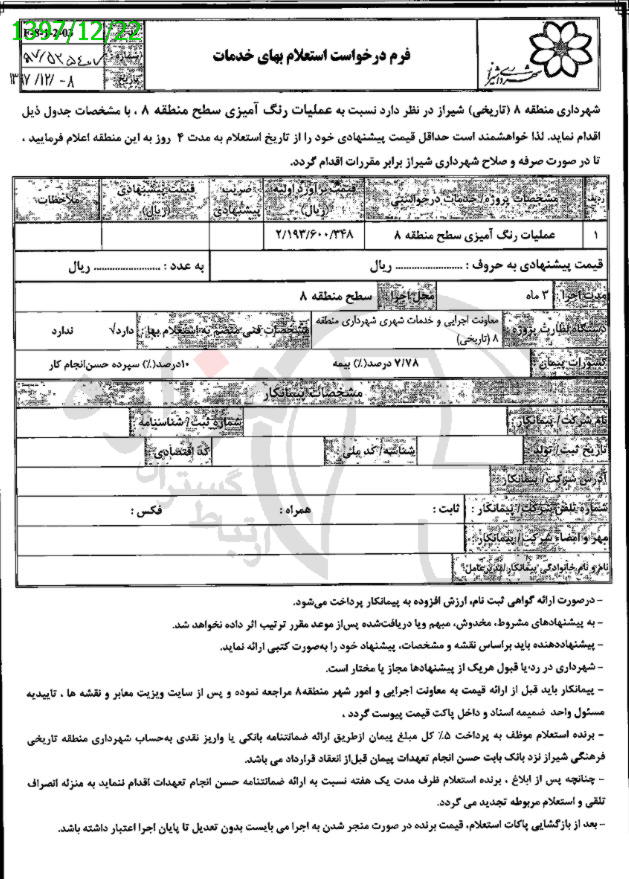 1397/12/22
F-8-1-2-03
۱۳۹۷/۱۲/-۸
فرم درخواست استعلام بهای خدمات
شهرداری شیراز
شهرداری منطقه ۸ (تاریخی) شیراز در نظر دارد نسبت به عملیات رنگ آمیزی سطح منطقه ۸ ، با مشخصات جدول ذیل
اقدام نماید. لذا خواهشمند است حداقل قیمت پیشنهادی خود را از تاریخ استعلام به مدت ۴ روز به این منطقه اعلام فرمایید ،
تا در صورت صرفه و صلاح شهرداری شیراز برابر مقررات اقدام گردد.
ردیف مشخصات پروژه/خدمات درخواستی قیمت برآورد اولیه (ریال) ضریب پیشنهادی قیمت پیشنهادی (ریال) ملاحظات
۱ عملیات رنگ آمیزی سطح منطقه ۸ ۲/۱۹۳/۶۰۰/۳۴۸
قیمت پیشنهادی به حروف : ........................ ریال به عدد : ........................ ریال
مدت اجرا : ۳ ماه محل اجرا : سطح منطقه ۸
دستگاه نظارت پروژه : معاونت اجرایی و خدمات شهری شهرداری منطقه ۸ (تاریخی) مشخصات فنی منضم به استعلام بها : دارد√ ندارد
کسورات پیمان : ۷/۷۸ درصد(٪) بیمه ۱۰درصد(٪) سپرده حسن‌انجام کار
مشخصات پیمانکار
نام شرکت/ پیمانکار : شماره ثبت/ شناسنامه :
تاریخ ثبت/ تولد : شناسه/ کد ملی : کد اقتصادی :
آدرس شرکت/ پیمانکار :
شماره تلفن شرکت/ پیمانکار : ثابت : همراه : فکس :
مهر و امضاء شرکت/ پیمانکار :
نام و نام خانوادگی پیمانکار/مدیرعامل:
- درصورت ارائه گواهی ثبت نام، ارزش افزوده به پیمانکار پرداخت می‌شود.
- به پیشنهادهای مشروط، مخدوش، مبهم ویا دریافت‌شده پس‌از موعد مقرر ترتیب اثر داده نخواهد شد.
- پیشنهاددهنده باید براساس نقشه و مشخصات، پیشنهاد خود را به‌صورت کتبی ارائه نماید.
- شهرداری در رد‌یا قبول هریک از پیشنهادها مجاز یا مختار است.
- پیمانکار باید قبل از ارائه قیمت به معاونت اجرایی و امور شهر منطقه۸ مراجعه نموده و پس از سایت ویزیت معابر و نقشه ها ، تاییدیه
مسئول واحد ضمیمه اسناد و داخل پاکت قیمت پیوست گردد ،
- برنده استعلام موظف به پرداخت ۵٪ کل مبلغ پیمان ازطریق ارائه ضمانتنامه بانکی یا واریز نقدی به‌حساب شهرداری منطقه تاریخی
فرهنگی شیراز نزد بانک بابت حسن انجام تعهدات پیمان قبل‌از انعقاد قرارداد می باشد.
- چنانچه پس از ابلاغ ، برنده استعلام ظرف مدت یک هفته نسبت به ارائه ضمانتنامه حسن انجام تعهدات اقدام ننماید به منزله انصراف
تلقی و استعلام مربوطه تجدید می گردد.
- بعد از بازگشایی پاکات استعلام، قیمت برنده در صورت منجر شدن به اجرا می بایست بدون تعدیل تا پایان اجرا اعتبار داشته باشد.